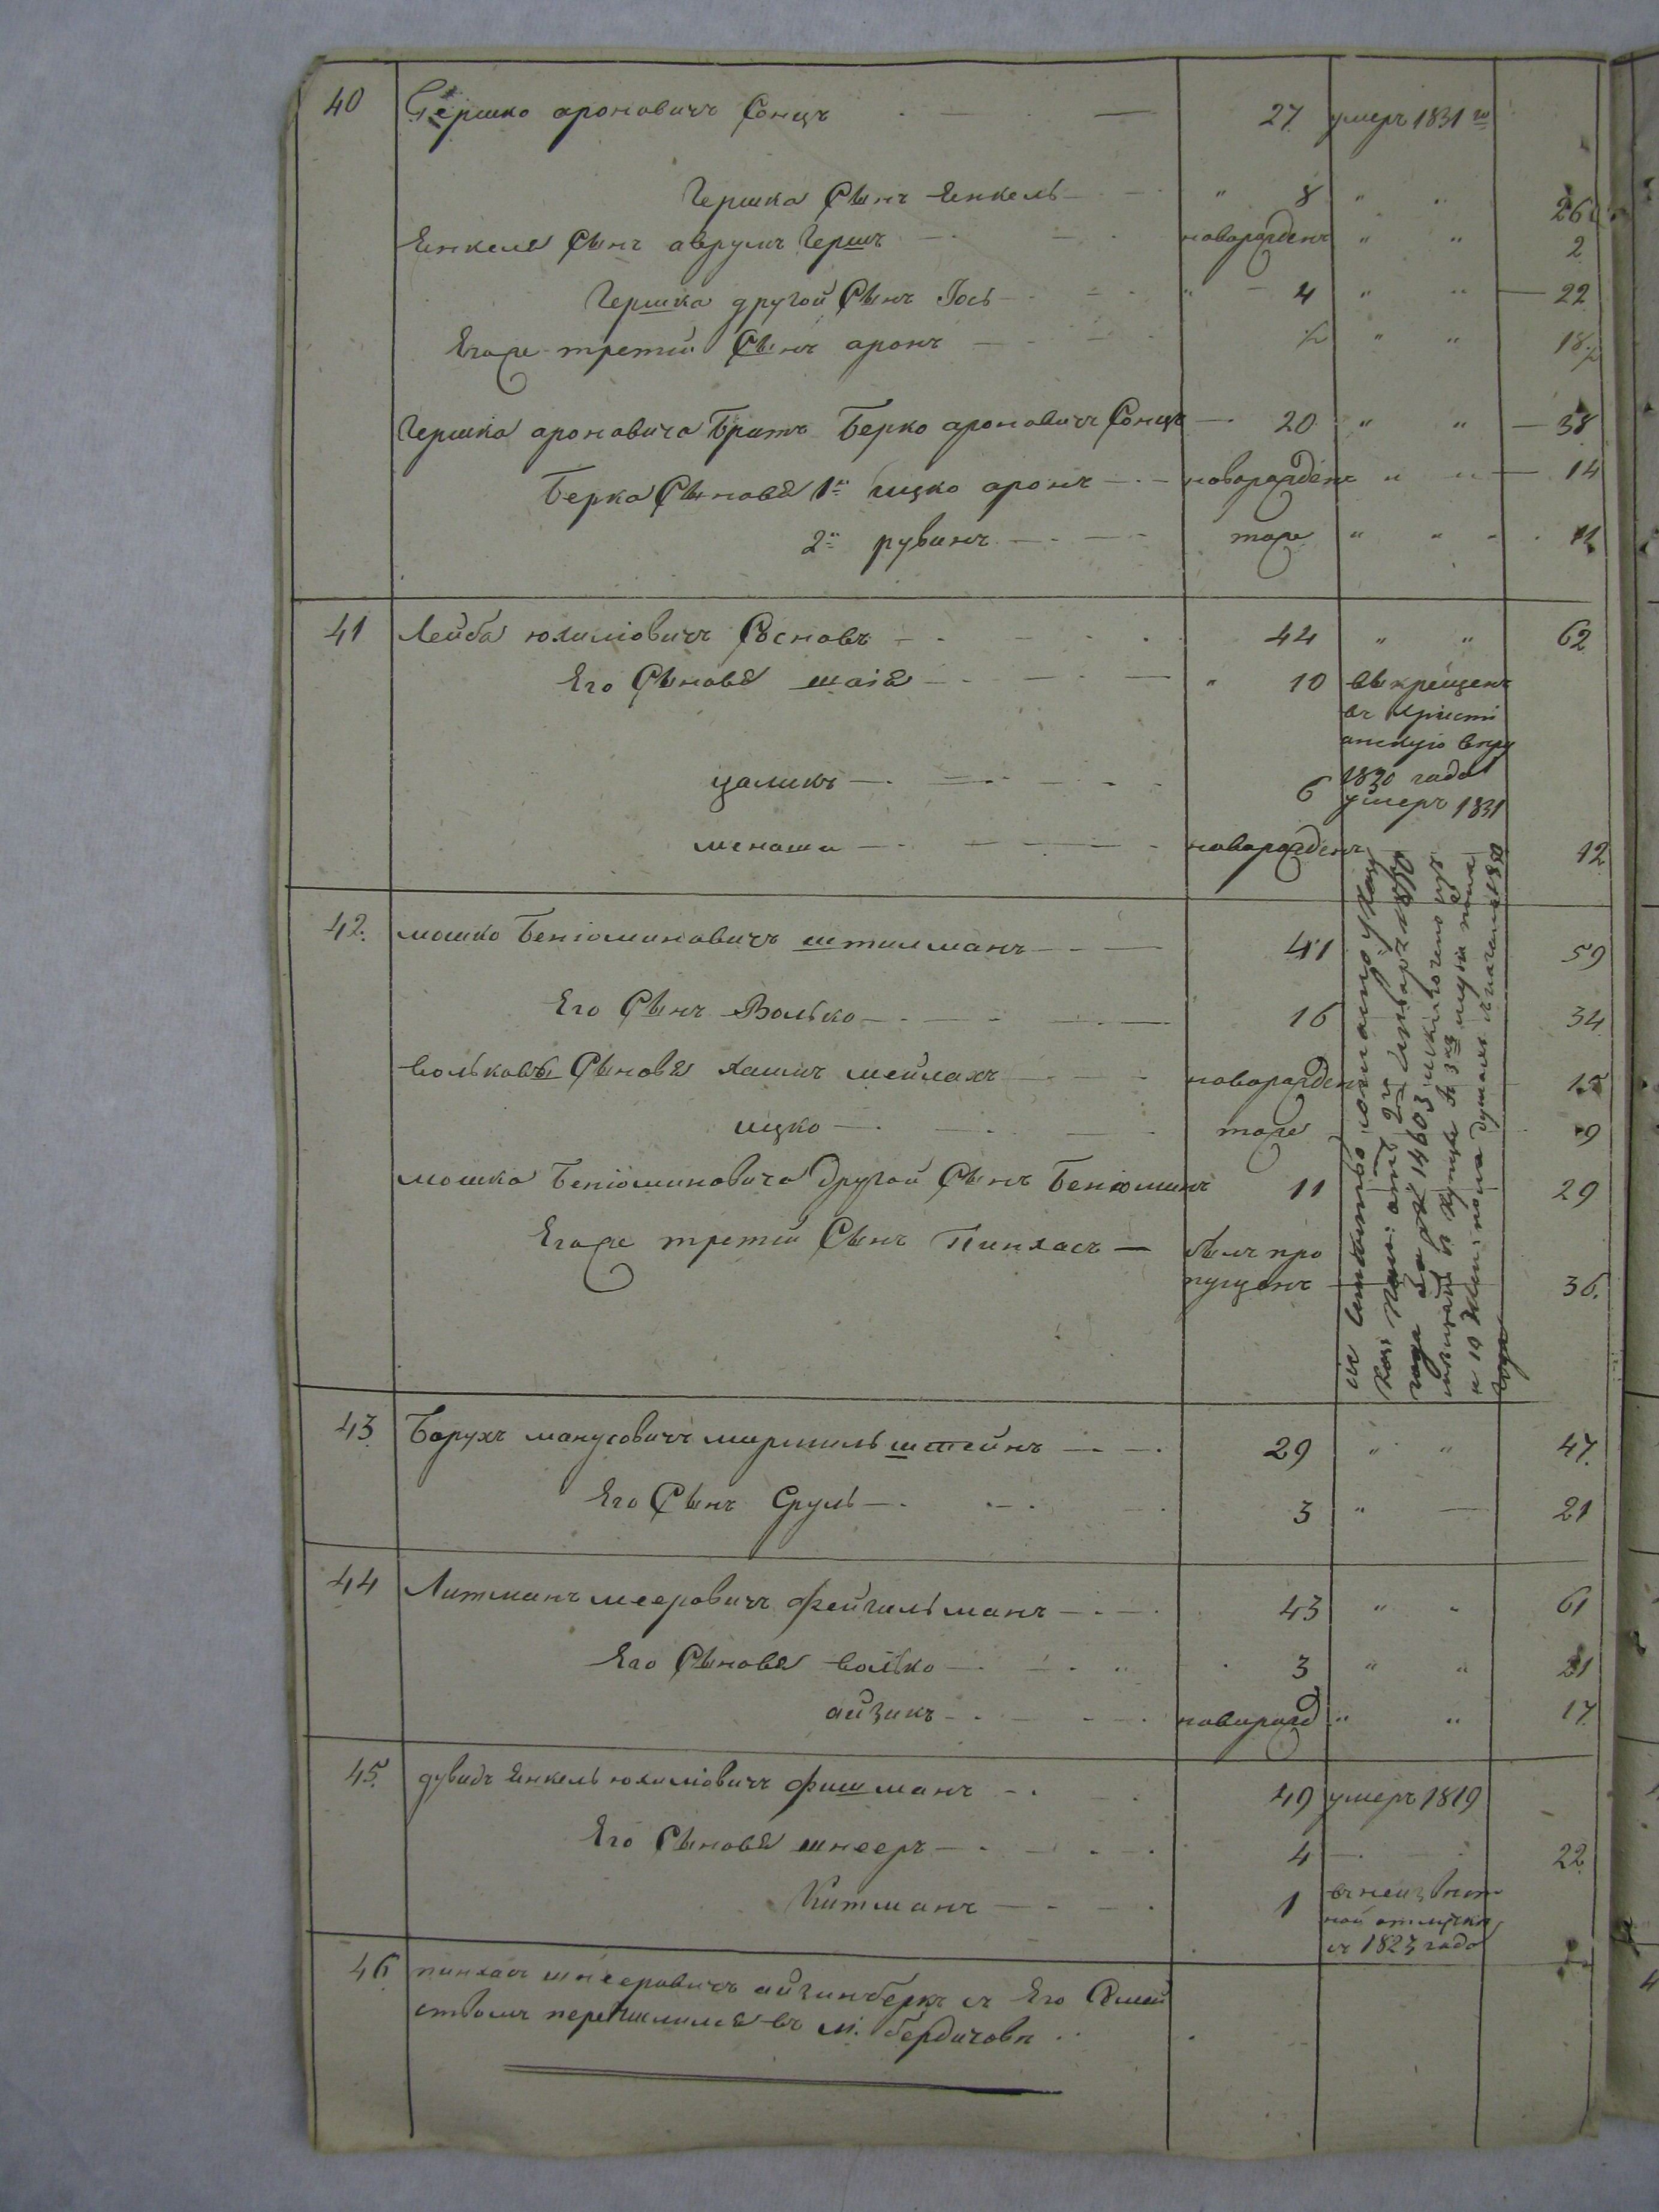 40 Гершко ароновичъ Сонцъ — 27 умеръ 1831 го
Гершка Сынъ Енкель — " 8 " " 26
Енкеля Сынъ аврумъ Гершъ — новорожденъ " " 2
Гершка другой Сынъ Іось — " 4 " " — 22
Егоже третій Сынъ аронъ — ½ " " 18½
Гершка ароновича Братъ Берко ароновичъ Сонцъ — 20 " " — 38
Берка Сыновя 1й ицко аронъ — новорожденъ " " — 14
2й рувинъ — тоже " " 11
41 Лейба юхимовичъ Сосновъ — 44 " " 62
Его Сыновя шаія — " 10 выкрещенъ
въ христі
анскую веру
1830 года
цаликъ — 6 умеръ 1831
менаша — новорожденъ 12
42. мошко Беніоминовичъ штилманъ — 41 59
Его Сынъ Волько — 16 34
вольковы Сыновя хаимъ мейлахъ — новорожден 15
ицко — тоже 9
мошка Беніоминовича другой Сынъ Бенюминъ 11 29
Егоже третій Сынъ Пинхасъ — былъ про
пущенъ — 36.
года за № 14603 исключено изъ
43 Борухъ манусовичъ мирмильштейнъ — 29 " " 47.
Его Сынъ Сруль — 3 " — 21
44 Литманъ мееровичъ фейгильманъ — 43 " " 61
Его Сыновя волько — 3 " " 21
айзикъ — новорожд " " 17
45. дувидъ Енкель юхимовичъ фишманъ — 49 умеръ 1819
Его Сыновя шнееръ — 4 — 22
Китманъ — 1 въ неизвест
ной отлучки
съ 1827 года
46 пинхасъ шнееровичъ айзинберкъ съ Его Семей
ствомъ перечислился въ м. бердичовъ